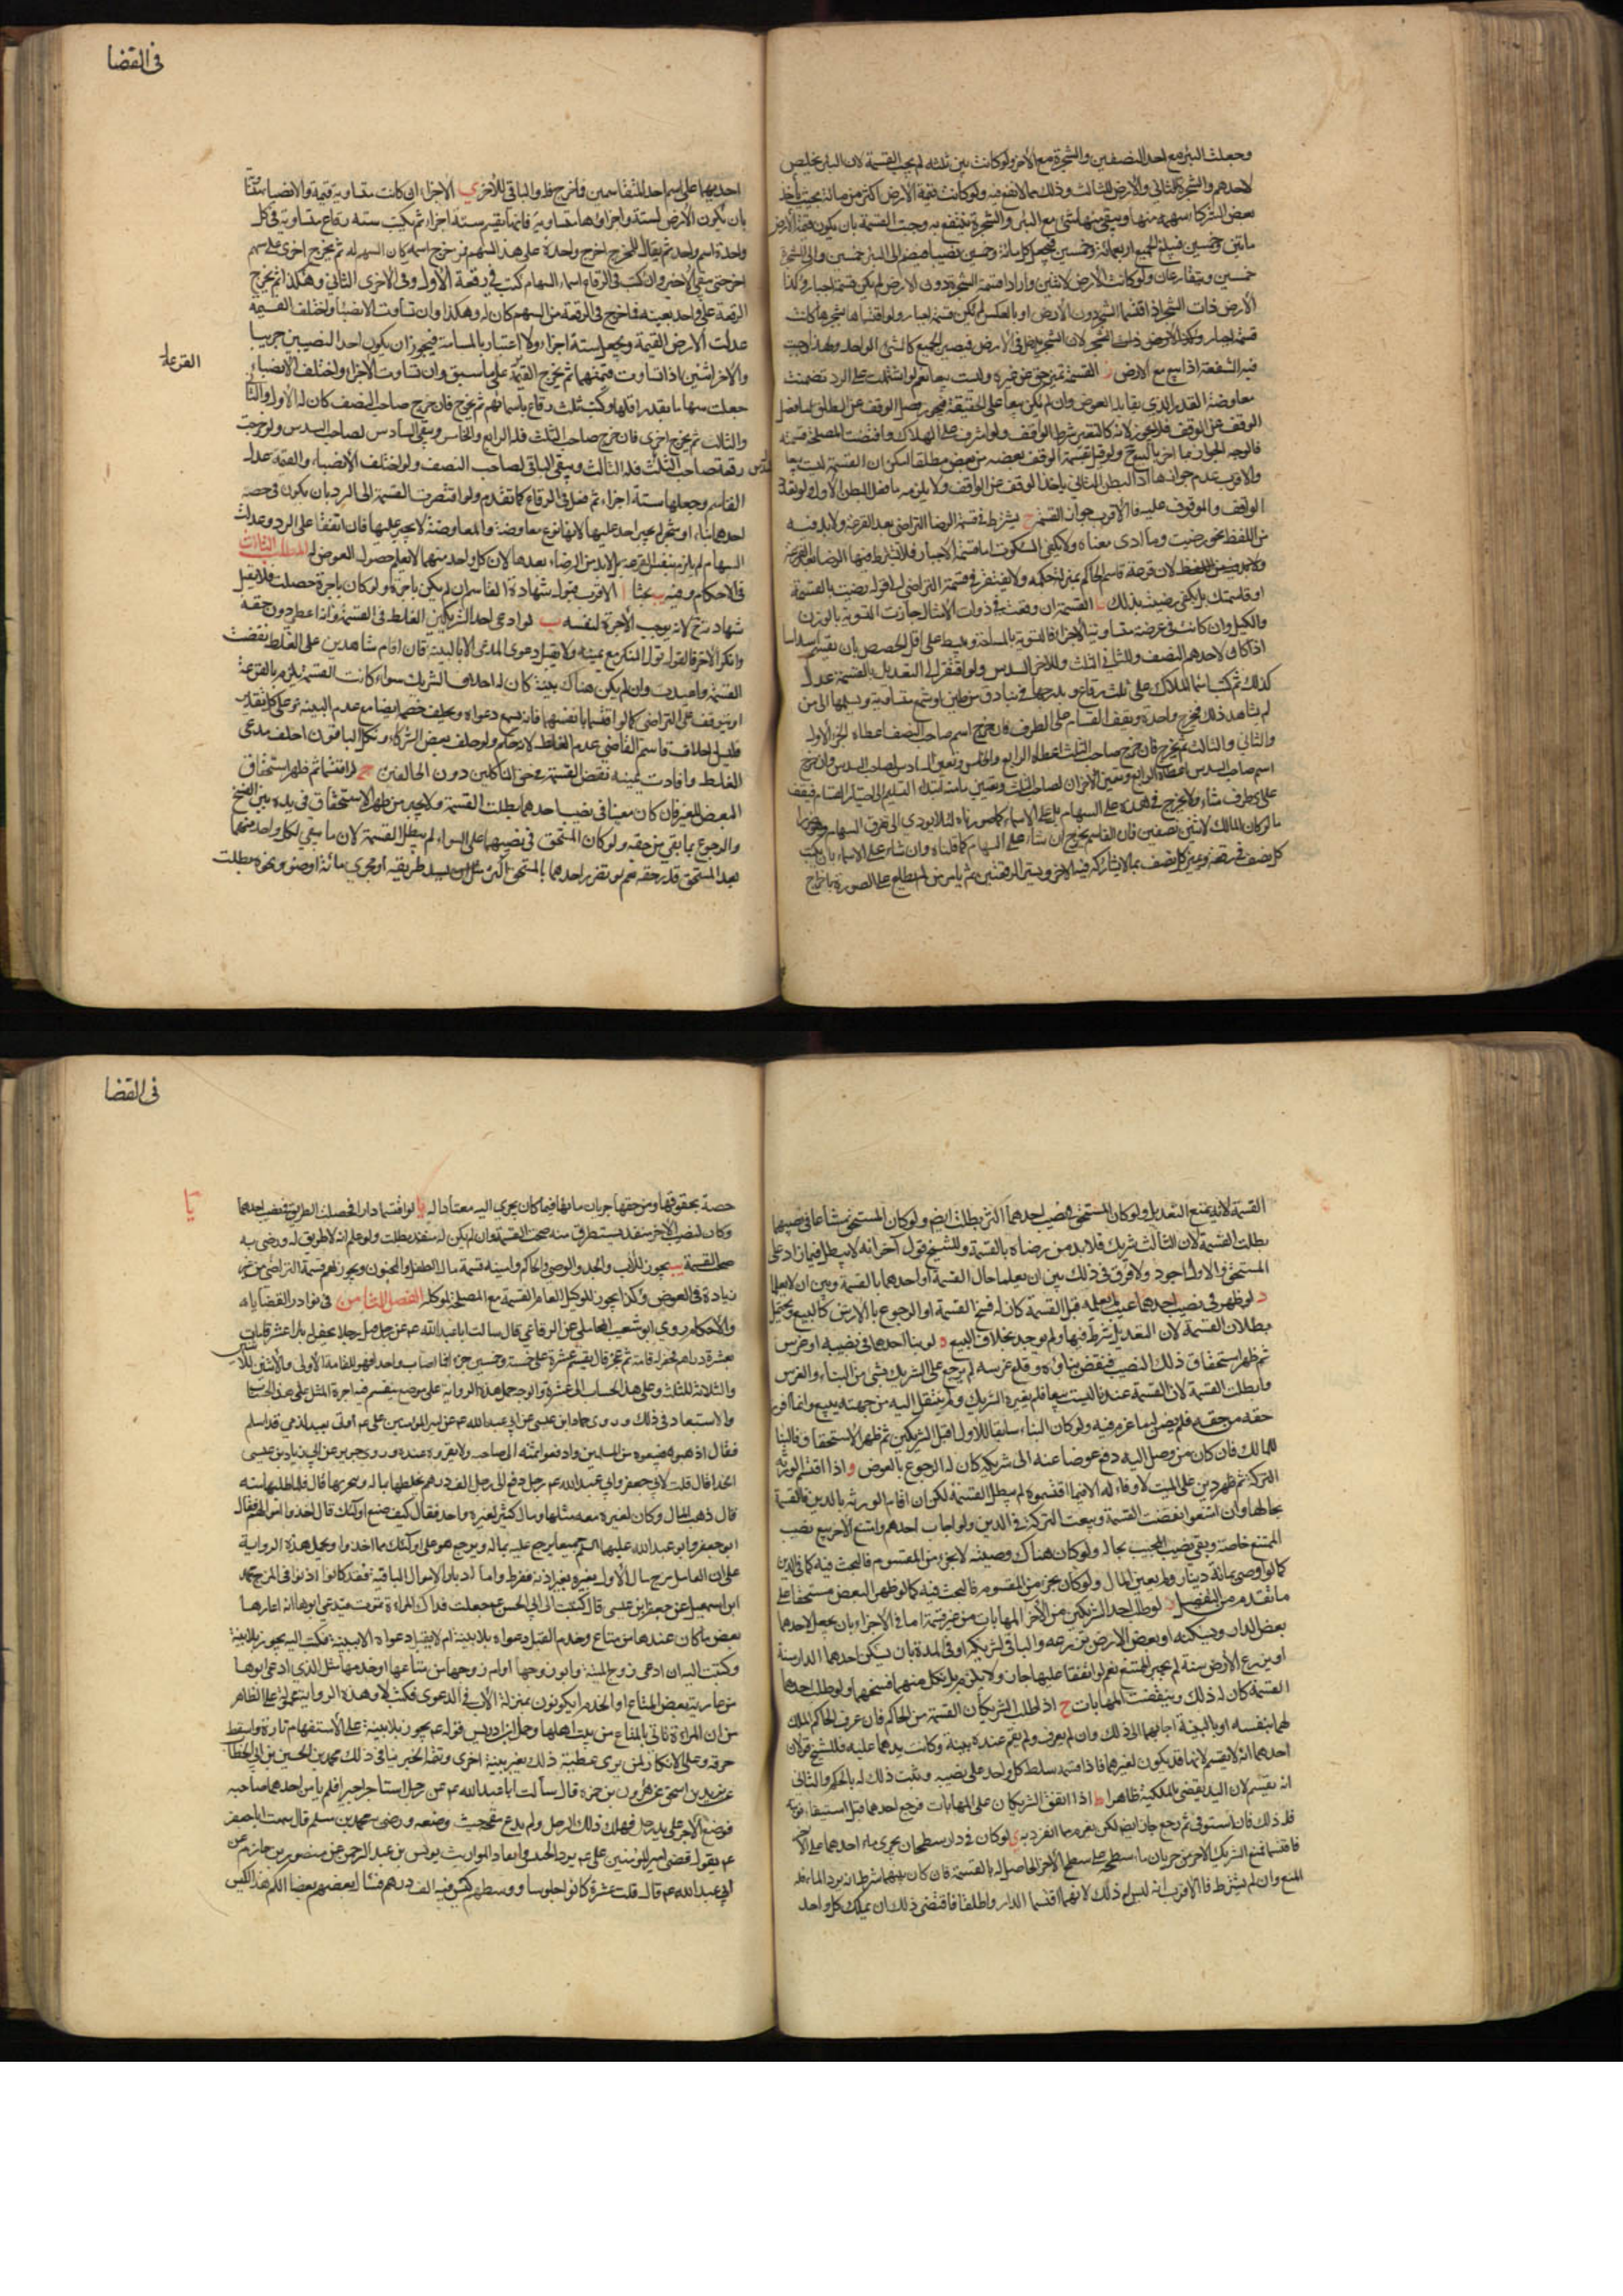 وجعلت البئر مع احد النصفين والشجرة مع الآخر ولو كانت بين ثلثه لم يجب القسمة لان البئر يخلص
لاحدهم والشجرة للثاني والارض للثالث وذلك مما لانفع فيه ولو كانت قيمة الارض اكثر من مائة بحيث يأخذ
بعض الشركا سهمه منها ويبقى منها شئ مع البئر والشجرة ينتفع به وجبت القسمة بان يكون قيمة الارض
مائتين وخمسين فيبلغ الجميع اربعمائة وخمسين فيجعل كل مائة وخمسين نصيبا فيضم الى البئر خمسين والى الشجرة
خمسين ويتقارعان ولو كانت الارض لاثنين وارادا قسمة الشجرة دون الارض لم يكن قسمة اجبار وكذا
الارض ذات الشجر اذا اقتسما الشجر دون الارض او بالعكس لم تكن قسمة اجبار ولو اقتسماها بشجرها كانت
قسمة اجبار
فيه الشفعة اذا بيع مع الارض ز القسمة تميز حق عن غيره وليست بيعا نعم لو اشتملت على الرد تضمنت
معاوضة القدر الذي يقابله العوض وان لم يكن بيعا على الحقيقة فيجوز فصل الوقف عن الطلق اما فصل
الوقف عن الوقف فلا يجوز لانه كالتغيير بشرط الواقف ولو اشرف على الهلاك واقتضت المصلحة قسمته
فالوجه الجواز كما اجزنا البيع ولو قيل بقسمة الوقف بعضه من بعض مطلقا امكن لان القسمة ليست بيعا
والاقرب عدم جوازها اذ البطن الثاني يأخذ الوقف عن الواقف ولا يلزمه ما فعل البطن الاول ولو تعدد
الواقف والموقوف عليه فالاقرب جواز القسمة ح يشترط في قسمة الرضا التراضي بعد القرعة ولابد فيه
من اللفظ نحو رضيت وما ادى معناه ولا يكفي السكوت اما قسمة الاجبار فلا يشترط فيها الرضا بعد القرعة
لان قرعة قاسم الحاكم بمنزلة حكمه ولا يفتقر في قسمة التراضي الى قوله رضيت بالقسمة
او قاسمتك بل يكفي رضيت بذلك ط القسمة ان وقعت في ذوات الامثال جازت التسوية بالوزن
والكيل وان كانت في عرصة متساوية الاجزاء فالتسوية بالمساحة ويبسط على اقل الحصص بان يقسم اسداسا
اذا كان لاحدهم النصف وللثاني الثلث وللاخر السدس ولو افتقر الى التعديل بالقسمة عدل
كذلك ثم كتب اسماء الملاك على ثلث رقاع ويدرجها في بنادق من طين او شمع متساوية ويسلمها الى من
لم يشاهد ذلك فيخرج واحدة ويقف القسام على الطرف فان خرج اسم صاحب النصف اعطاه الجزء الاول
والثاني والثالث ثم يخرج فان خرج صاحب الثلث اعطاه الرابع والخامس وتعين السادس لصاحب السدس وان خرج
اسم صاحب السدس اعطاه الرابع وتعين الاخران لصاحب الثلث
على اي طرف شاء ولا يخرج في هذه على السهام بل على الاسماء كما صورناه لئلا يودي الى تفرق السهام
ما لو كان المالك لاثنين نصفين فان القاسم يخرج ان شاء على السهام كما قلناه وان شاء على الاسماء بان يكتب
كل نصف في رقعة ويميز كل نصف بما لا يشاركه فيه الاخر ويستر الرقعتين ثم يأمر من لم يطلع على الصورة باخراج
في القضا
احديهما على اسم احد المتقاسمين فما خرج فله والباقي للاخر ي الاجزاء ان كانت متساوية قيمة والانصباء متفقة
بان تكون الارض لستة واجزاؤها متساوية فانها تقسم ستة اجزاء ثم يكتب ستة رقاع متساوية في كل
واحدة اسم واحد ثم يقال للمخرج اخرج واحدة على هذا السهم فمن خرج اسمه كان السهم له ثم يخرج اخرى على سهم
اخر حتى يبقى الاخير وان كتب في الرقاع اسماء السهام كتب في رقعة الاول وفي الاخرى الثاني وهكذا ثم يخرج
الرقعة على واحد بعينه فما خرج في الرقعة من السهم كان له وهكذا وان تساوت الانصباء واختلفت القسمة
عدلت الارض بالقيمة ويجعل ستة اجزاء ولا اعتبار بالمساحة فيجوز ان يكون احد النصيبين جريبا
والاخر اثنين اذا تساوت قيمتهما ثم يخرج القيمة على ما سبق وان تساوت الاجزاء واختلف الانصباء
جعلت سهاما بقدر اقلها وكتب ثلث رقاع باسمائهم ثم يخرج فان خرج صاحب النصف كان له الاول والثاني
والثالث ثم يخرج اخرى فان خرج صاحب الثلث فله الرابع والخامس وبقي السادس لصاحب السدس ولو خرجت
رقعة صاحب الثلث فله الثالث ويبقى الباقي لصاحب النصف ولو اختلف الانصباء والقيمة عدل
القرعة
القاسم وجعلها ستة اجزاء ثم فعل في الرقاع كما تقدم ولو افتقرت القسمة الى الرد بان يكون في حصة
احدهما بناء او شجر لم يجبر احد عليها لانها نوع معاوضة والمعاوضة لا يجبر عليها فان اتفقا على الرد وعدلت
السهام لم يلزم بنفس القرعة بل لابد من الرضاء بعدها لان كل واحد منهما لا يعلم حصول العوض له المطلب الثالث
في الاحكام وفيه يب بحثا ا الاقرب قبول شهادة القاسم ان لم يكن باجرة ولو كان باجرة حصلت فلا يقبل
شهادته ح لانه يوجب الاجرة لنفسه ب لو ادعى احد الشريكين الغلط في القسمة وانه اعطى دون حقه
وانكر الاخر فالقول قول المنكر مع يمينه ولا يقبل دعوى المدعي الا بالبينة فان اقام شاهدين على الغلط نقضت
القسمة واعيدت وان لم يكن هناك بينة كان له احلاف الشريك سواء كانت القسمة يلزم بالقرعة
او يتوقف على التراضي كما لو اقتسما بانفسهما فانه يسمع دعواه ويحلف خصمه ايضا مع عدم البينة وعلى كل تقدير
فليس له احلاف قاسم القاضي عدم الغلط لانه حاكم ولو حلف بعض الشركاء ونكل الباقون احلف مدعي
الغلط وافادت يمينه نقض القسمة في حق الناكلين دون الحالفين ج لو اقتسما ثم ظهر استحقاق
البعض للغير فان كان معينا في نصيب احدهما بطلت القسمة
والرجوع بما بقي من حقه ولو كان المستحق في نصيبهما على السواء لم يبطل القسمة لان ما يبقي لكل واحد منهما
بعد المستحق قدر حقه
القسمة لانه يمنع التعديل ولو كان المستحق في نصيب احدهما اكثر بطلت ايضا ولو كان المستحق مشاعا في نصيبهما
بطلت القسمة لان الثالث شريك فلابد من رضاه بالقسمة وللشيخ قول آخر انه لا يبطل فيما زاد على
المستحق والاول اجود ولا فرق في ذلك بين ان يعلما حال القسمة او احدهما بالقسمة وبين ان لا يعلما
د لو ظهر في نصيب احدهما عيب لم يعلمه قبل القسمة كان له فسخ القسمة او الرجوع بالارش كالبيع ويحتمل
بطلان القسمة لان التعديل شرط فيها ولم يوجد بخلاف البيع ه لو بنا احدهما في نصيبه او غرس
ثم ظهر استحقاق ذلك النصيب فنقض بناؤه وقلع غرسه لم يرجع على الشريك بشئ من البناء والغرس
وان بطلت القسمة لان القسمة عندنا ليست بيعا فلم يغره الشريك ولم ينتقل اليه من جهته ببيع وانما افرز
حقه من حقه فلم يضمن له ما غرم فيه
للمالك فان كان من وصل اليه دفع عوضا عنه الى شريكه كان له الرجوع بالعوض و اذا اقتسم الورثة
التركة ثم ظهر دين على الميت لا وفاء له الا فيما اقتسموه لم يبطل القسمة لكن ان اقام الورثة بالدين فالقسمة
بحالها وان امتنعوا نقضت القسمة وبيعت التركة في الدين ولو اجاب احدهم وامتنع الاخر بيع نصيب
الممتنع خاصة وبقي نصيب المجيب بحاله ولو كان هناك وصية لا بجزء من المقسوم فالبحث فيه كما في الدين
كما لو اوصى بمائة دينار ولم يعين المال ولو كان بجزء من المقسوم فالبحث فيه كما لو ظهر البعض مستحقا على
ما تقدم من التفصيل ز لو طلب احد الشريكين من الآخر المهايات من غير قسمة اما في الاجزاء بان يجعل لاحدهما
بعض الدار ويسكنه او بعض الارض يزرعه والباقي لشريكه او في المدة بان يسكن احدهما الدار سنة
او يزرع الارض سنة لم يجبر الممتنع نعم لو اتفقا عليها جاز ولا يلزم بل لكل منهما فسخهما ولو طلب احدهما
القسمة كان له ذلك وينتقضت المهايات ح اذا طلب الشريكان القسمة من الحاكم فان عرف الحاكم الملك
لهما بنفسه او بالبينة اجابهما الى ذلك وان لم يعرف ولم يقم عنده بينة وكانت يدهما عليه فللشيخ قولان
احدهما انه لا يقسم لانها قد يكون لغيرهما فاذا قسمه سلط كل واحد على نصيبه ويثبت ذلك له بالحكم والثاني
انه يقسم لان اليد يقضي بالملكية ظاهرا ط اذا اتفق الشريكان على المهايات فرجع احدهما قبل استيفاء نوبته
فله ذلك فان استوفى ثم رجع جاز ايضا لكن يغرم ما انفرد به ي لو كان في دار سطحان يجري ماء احدهما على الاخر
فاقتسما فمنع الشريك الاخر من جريان ماء سطحه على سطح الاخر الحاصل له بالقسمة فان كان بينهما شرط انه يرد الماء فله
المنع وان لم يشترط فالاقرب انه ليس له ذلك لانهما اقتسما الدار واطلقا فاقتضى ذلك ان يملك كل واحد
في القضا
حصة بحقوقها ومن حقها جريان مائها فيما كان يجري اليه معتادا له يا لو اقتسما دارا فحصلت الطريق في نصيب احدهما
يا
وكان لنصيب الآخر منفذ يستطرق منه صحت القسمة وان لم يكن له منفذ بطلت ولو علم انه لا طريق له ورضي به
صحت القسمة يب يجوز للاب والجد والوصي والحاكم وامينه قسمة مال الطفل والمجنون ويجوز لهم قسمة التراضي من غير
زيادة في العوض وكذا يجوز للوكيل العام القسمة مع المصلحة لموكله الفصل الثامن في نوادر القضايا
والاحكام روى ابو شعيب المحاملي عن الرفاعي قال سالت ابا عبد الله عه عن رجل قبل رجلا يحفر له بئرا عشر قامات
بعشرة دراهم فحفر له قامة ثم عجز قال يقسم عشرة على خمسة وخمسين جزء فما اصاب واحدا فهو للقامة الاولى والاثنين للاثنين
والثلاثة للثلث وعلى هذا الحساب الى عشرة والوجه حمل هذه الرواية على موضع ينقسم فيه اجرة المثل على هذا الحساب
ولا استبعاد في ذلك وروى حماد بن عيسى عن ابي عبد الله عه عن امير المؤمنين على عه اوتى بعبد لذمي قد اسلم
فقال اذهبوا فبيعوه من المسلمين وادفعوا ثمنه الى صاحبه ولا تقروه عنده وروى حريز عن
الحذا قال قلت لابي جعفر وابي عبد الله عه رجل دفع الى رجل الف درهم يخلطها بماله ويتجر بها قال فلما طلبها منه
قال ذهب المال وكان لغيره معه مثلها ومال كثير لغير واحد فقال كيف صنع اولئك قال اخذوا اموالهم فقال
ابو جعفر وابو عبد الله عليهما السلم جميعا يرجع عليه بماله ويرجع هو على اولئك بما اخذوا ويحمل هذه الرواية
على ان العامل مزج مال الاول بغيره بغير اذنه ففرط واما الاموال الباقية فقد كانوا اذنوا في المزج محمد
ابن اسمعيل عن جعفر بن عيسى قال كتبت الى ابي الحسن عه جعلت فداك المراءة تموت فيدعي ابوها انه اعارها
بعض ما كان عندها من متاع وخدم اتقبل دعواه بلا بينة ام لا يقبل دعواه الا ببينة فكتب اليه يجوز بلا بينة
وكتبت اليه ان ادعى زوج الميتة وابو زوجها او ام زوجها من متاعها او خدمها مثل الذي ادعى ابوها
من عارية بعض المتاع او الخدم ايكونون بمنزلة الاب في الدعوى فكتب لا وهذه الرواية محمولة على الظاهر
من ان المراءة تاتي بالمتاع من بيت اهلها وحمل ابن ادريس قوله عه يجوز بلا بينة على الاستفهام تارة واسقط
حرفه وعلى الانكار لمن يرى عطية ذلك بغير بينة اخرى وتتمة الخبر ينافي ذلك محمد بن الحسين بن ابي الخطاب
عن يزيد بن اسحق عن هرون بن حمزة قال سالت ابا عبد الله عه عن رجل استاجر اجيرا فلم يامن احدهما صاحبه
فوضع الاجر على يد رجل فهلك ذلك الرجل ولم يدع
عه يقول قضى امير المؤمنين على عه برد الحبيس وانفاذ المواريث يونس بن عبد الرحمن عن منصور بن حازم عن
ابي عبد الله عه قال قلت عشرة كانوا جلوسا ووسطهم كيس فيه الف درهم فسأل بعضهم بعضا الكم هذا الكيس